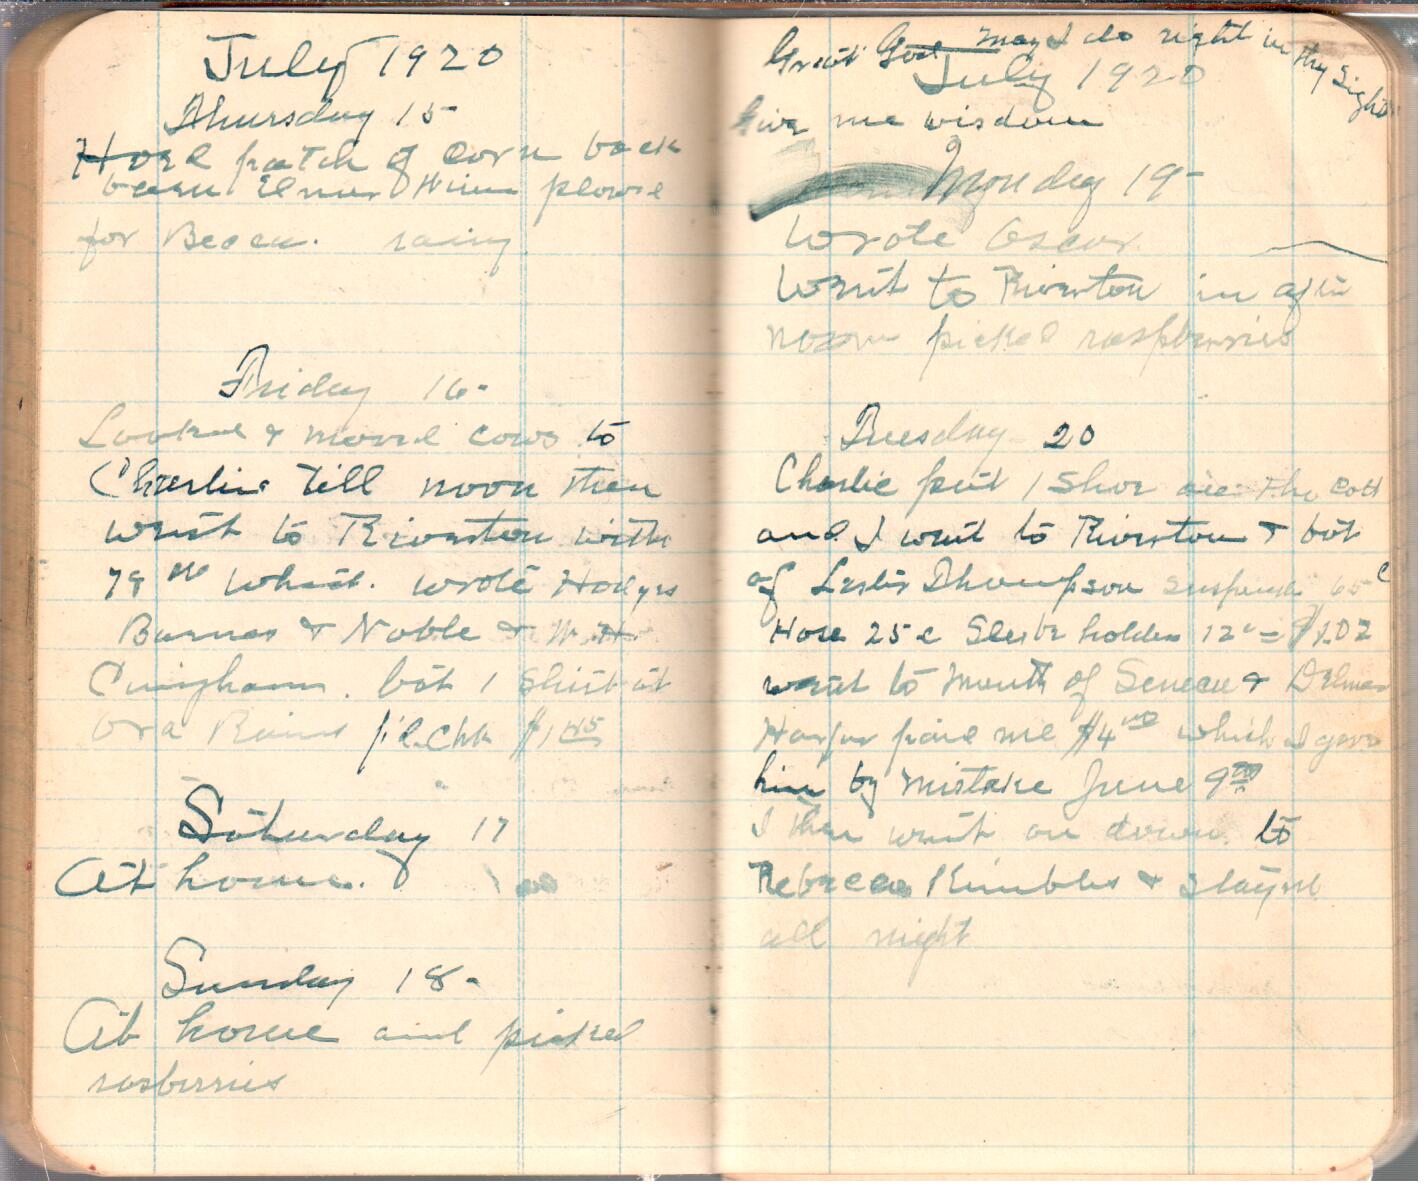 July 1920
Thursday 15
Hoed patch of corn back
Elmer Hines plowed
for Becca. rainy
Friday 16-
Looked & moved cows to
Charlie till noon then
went to Riverton with
wheat. wrote Hodges
Barnes & Noble & W. H.
Cuningham. bot 1 shirt at
Ora Rains $1 45
Saturday 17
At home.
Sunday 18-
At home and picked
rasberries
Great God may I do right in thy sight
July 1920
Give me wisdom
Monday 19-
Wrote Oscar
Went to Riverton in after
noon picked raspberries
Tuesday 20
Charlie put 1 Shoe on the colt
and I went to Riverton & bot
of Leslie Thompson suspends 65 c
Hose 25 c Sleeve holders 12c = $1.02
went to Mouth of Seneca & Delmer
Harper paid me $4 00 which I gave
him by mistake June 9
I then went on down to
Rebecca Kimbles & stayed
all night